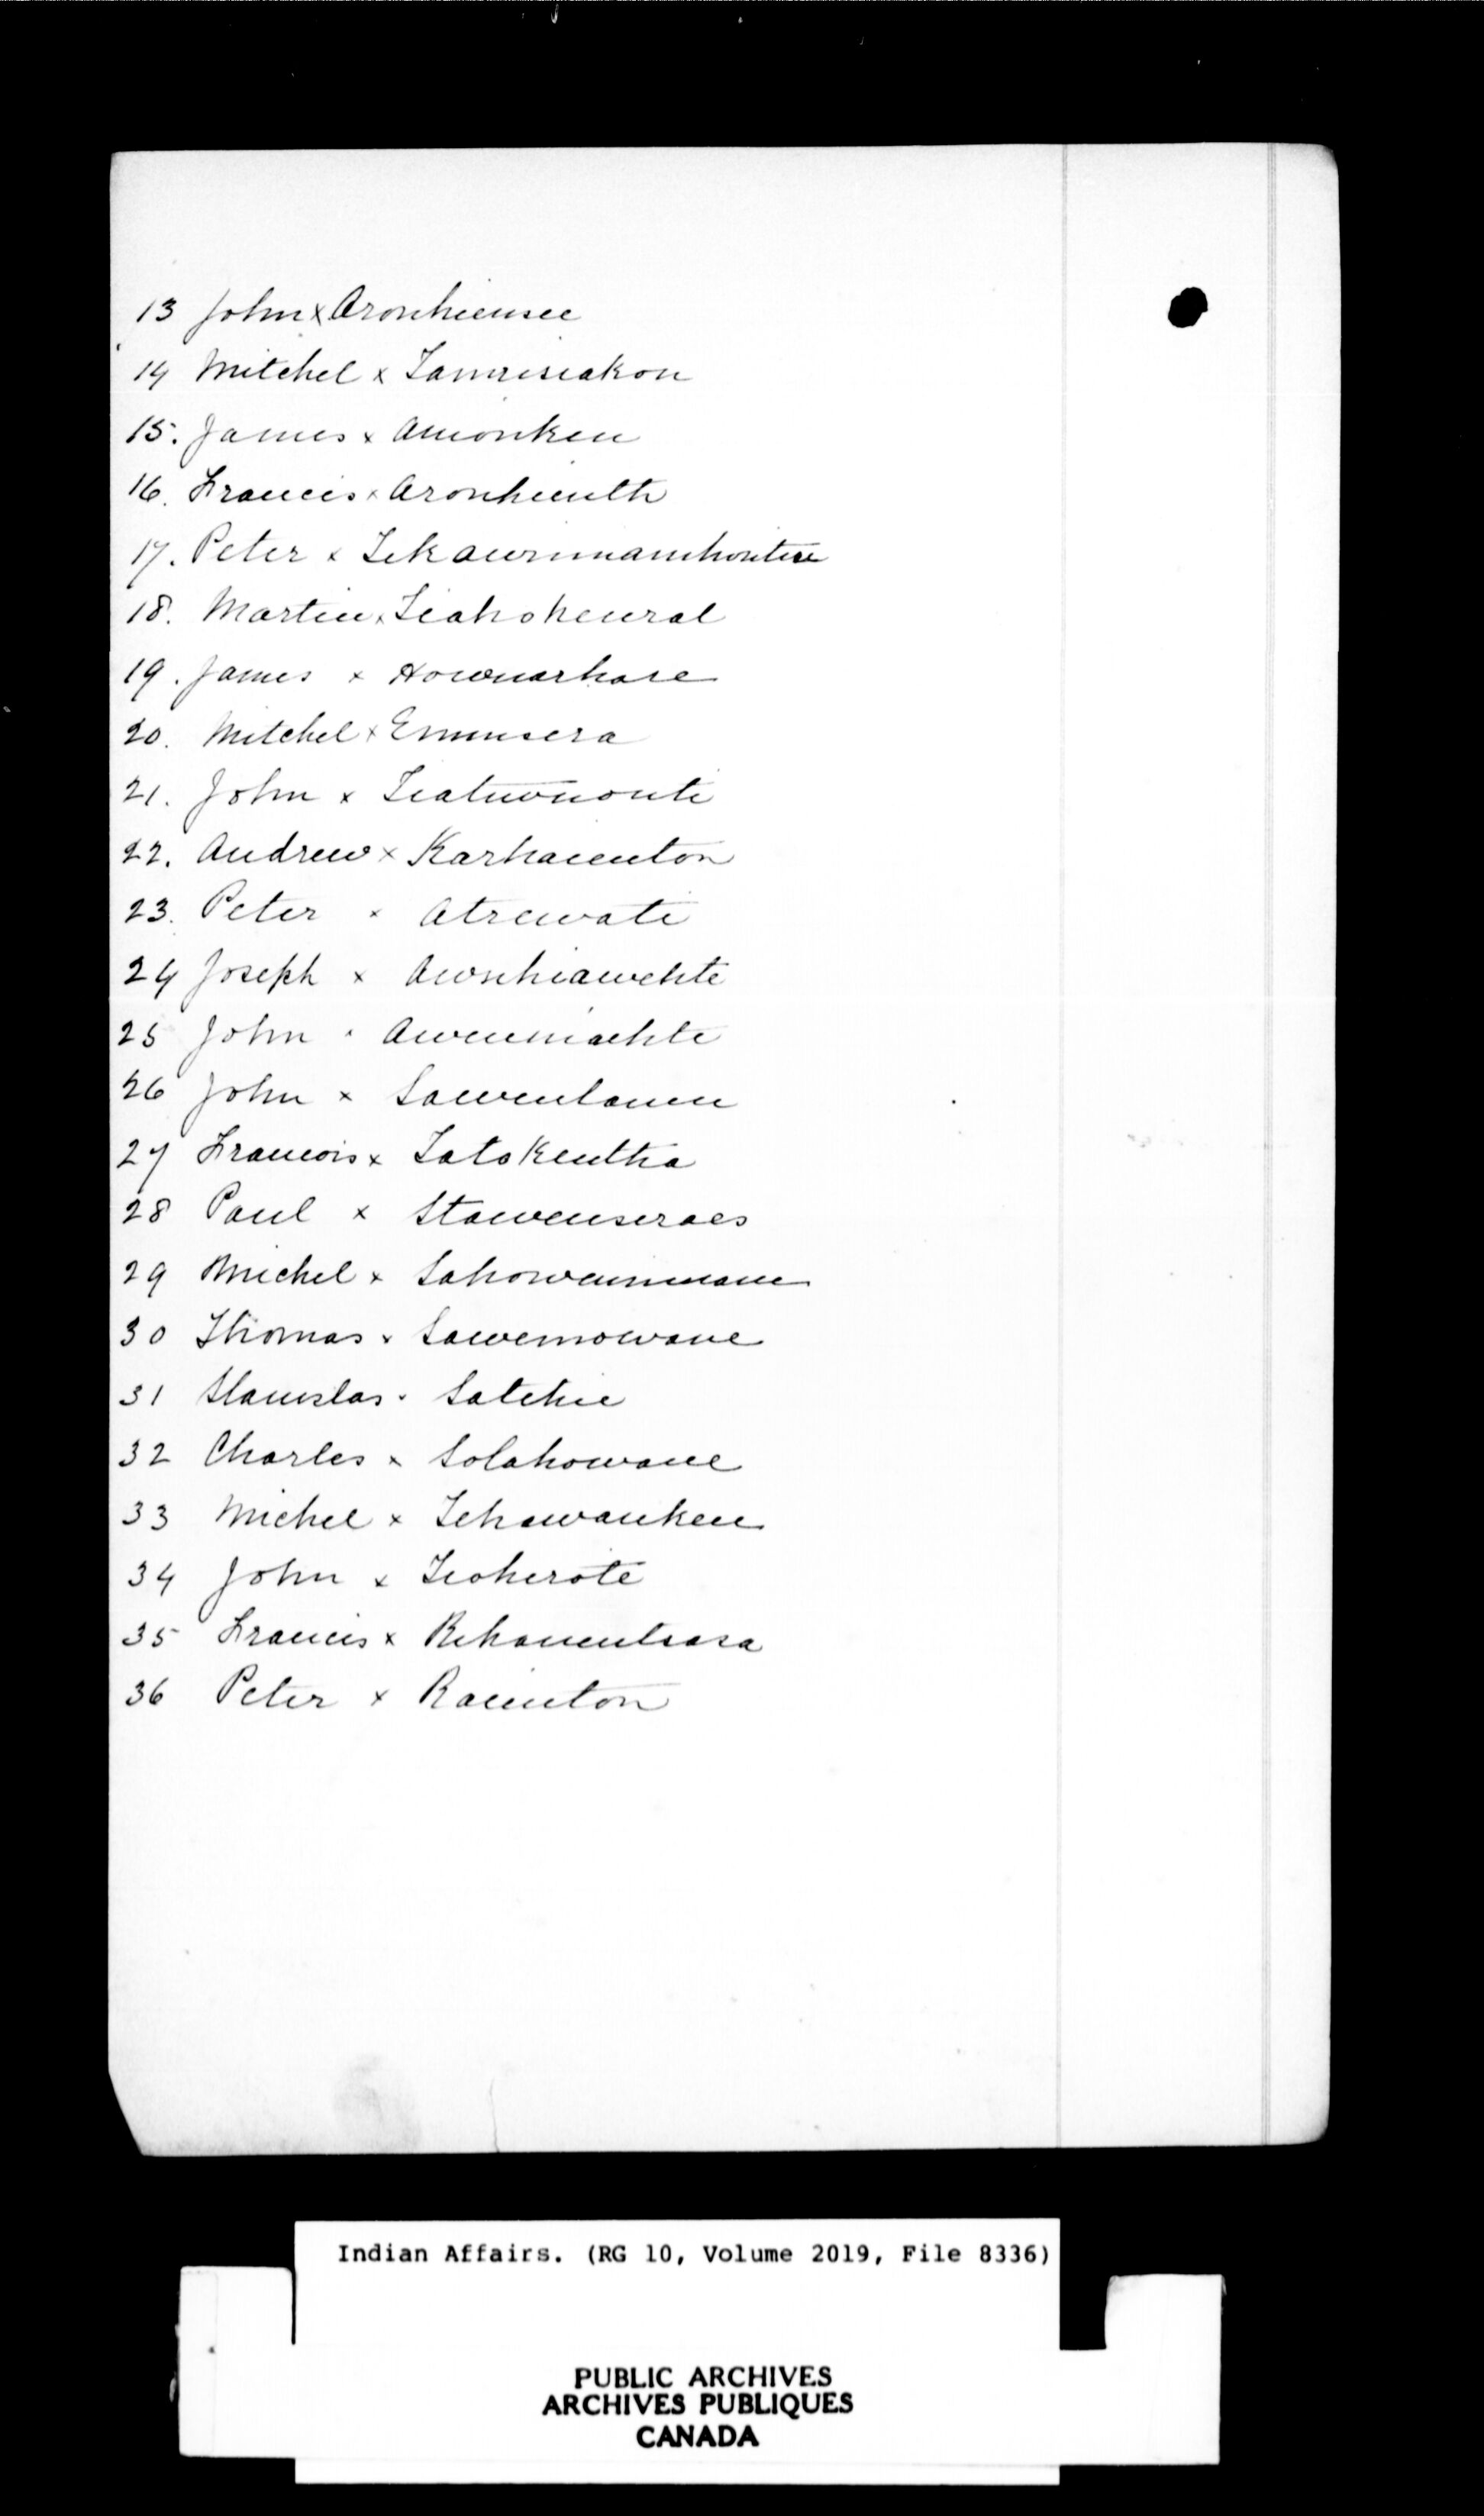 13 John x Aronhiensee
14 Mitchel x Tamrisiakon
15. James x Amonken
16. Francis x Aronhienth
17. Peter x Tekawrimamhontere
18. Martin x Teahohenral
19. James x Hownarhase
20. Mitchel x Ennusera
21. John x Teatnwnonti
22. Andrew x Karhaienton
23. Peter x Atrewati
24 Joseph x Awnhiawehte
25 John x Awenniachte
26 John x Sawenlanen
27 Francois x Tatokentha
28 Paul x Stawenseraes
29 Michel x Sahowennnane
30 Thomas x Sawennowane
31 Stanislas x Satehie
32 Charles x Solahowane
33 Michel x Tehawanken
34 John x Teoherote
35 Francis x Rihanentsasa
36 Peter x Raienton
Indian Affairs. (RG 10, Volume 2019, File 8336)
PUBLIC ARCHIVES
ARCHIVES PUBLIQUES
CANADA